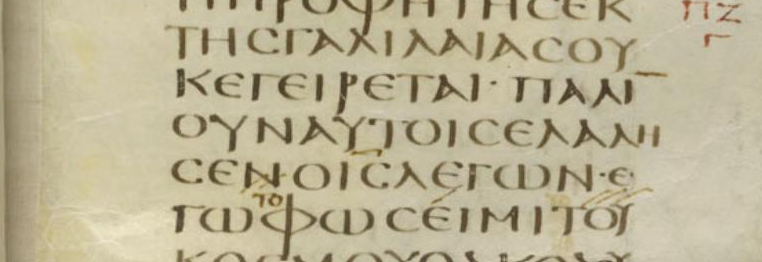 ΤΙΠΡΟΦΗΤΗϹΕΚ ΠΖ
ΤΗϹΓΑΛΙΛΑΙΑϹΟΥ Γ
ΚΕΓΕΙΡΕΤΑΙ·ΠΑΛΙ̅
ΟΥΝΑΥΤΟΙϹΕΛΑΛΗ
ϹΕΝ·ΟΙ̅Ϲ̅ΛΕΓΩΝ·Ε
ΓΩ ΤΟ ΦΩϹΕΙΜΙΤΟΥ
ΚΟϹΜΟΥΟΑΚΟΛΟΥ